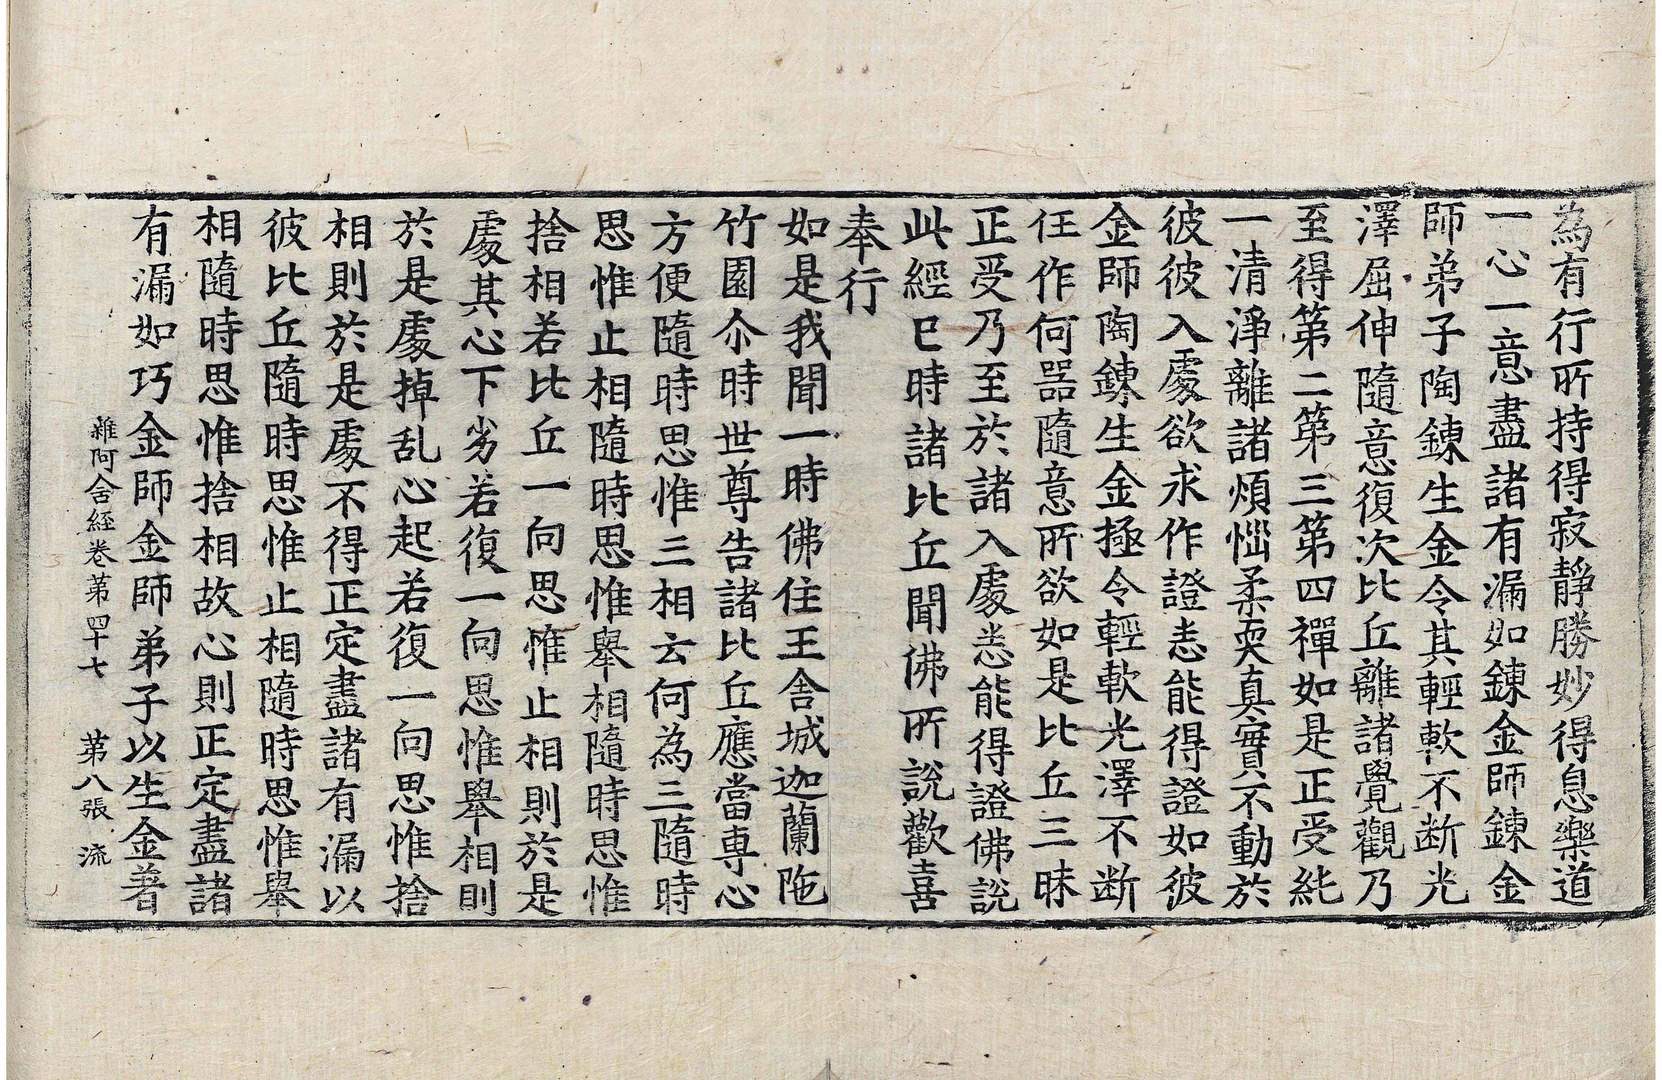 為有行所持得寂靜勝妙得息樂道
一心一意盡諸有漏如鍊金師鍊金
師弟子陶鍊生金令其輕軟不断光
澤屈伸隨意復次比丘離諸覺觀乃
至得第二第三第四禪如是正受純
一清淨離諸煩惱柔耎真實不動於
彼彼入處欲求作證悉能得證如彼
金師陶鍊生金極令輕軟光澤不断
任作何器隨意所欲如是比丘三昧
正受乃至於諸入處悉能得證佛說
此經已時諸比丘聞佛所說歡喜
奉行
如是我聞一時佛住王舍城迦蘭陁
竹園尒時世尊告諸比丘應當專心
方便隨時思惟三相云何為三隨時
思惟止相隨時思惟舉相隨時思惟
捨相若比丘一向思惟止相則於是
處其心下劣若復一向思惟舉相則
於是處掉乱心起若復一向思惟捨
相則於是處不得正定盡諸有漏以
彼比丘隨時思惟止相隨時思惟舉
相隨時思惟捨相故心則正定盡諸
有漏如巧金師金師弟子以生金著
雜阿含経卷第四十七 第八張 流